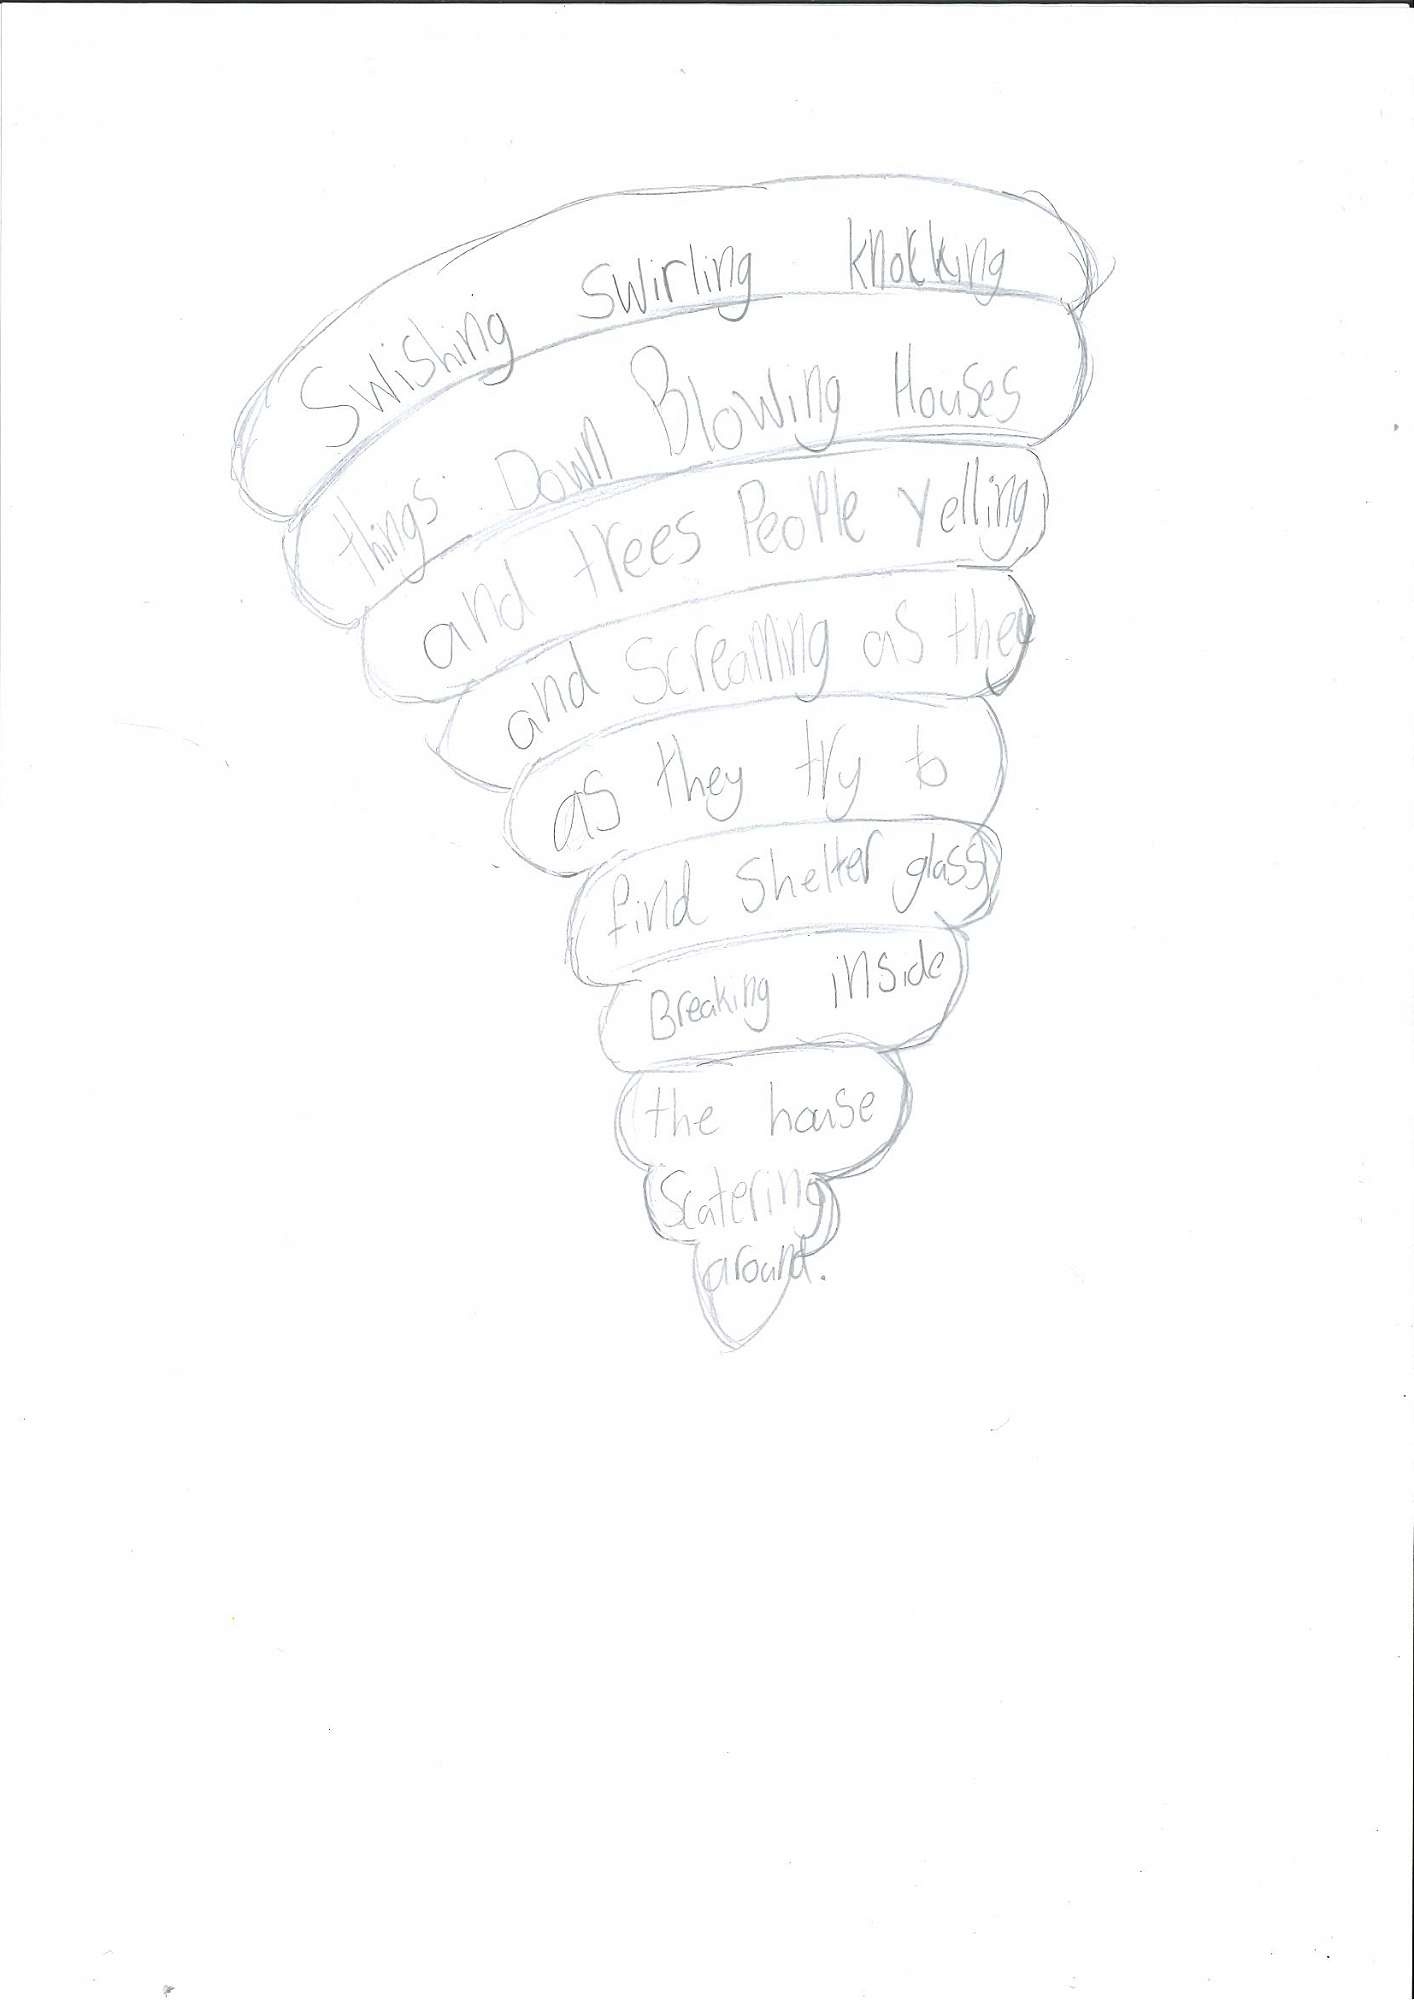 Swishing swirling knokking
things Down Blowing Houses
and trees People yelling
and screaming as they
as they try to
find shelter glass
Breaking inside
the house
Scatering
around.